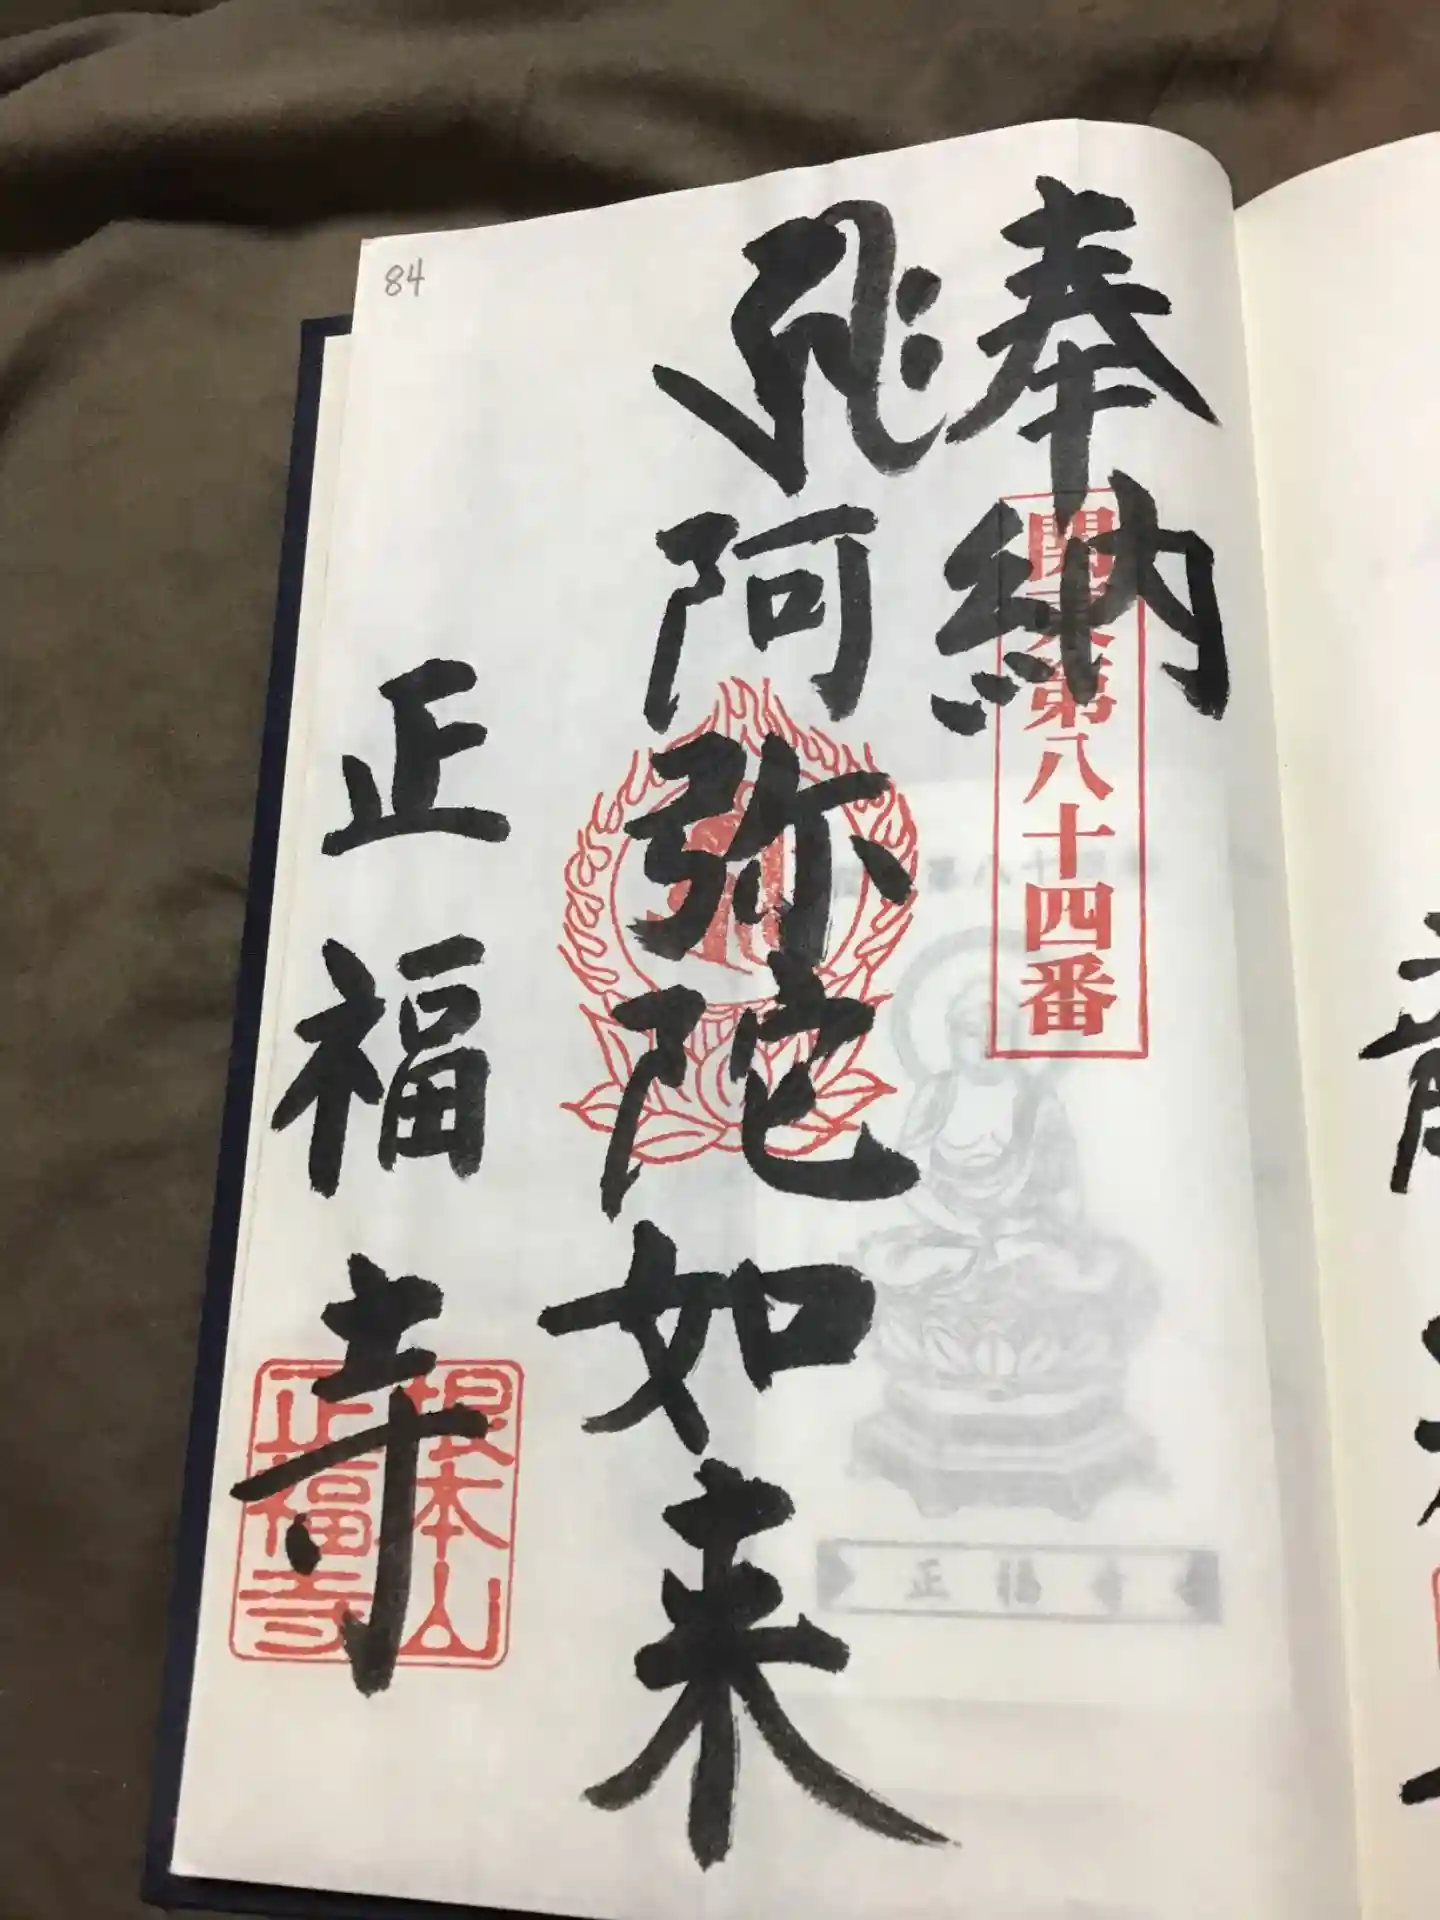 奉納
関東第八十四番
阿弥陀如来
正福寺
根本山
正福寺
84
正福寺